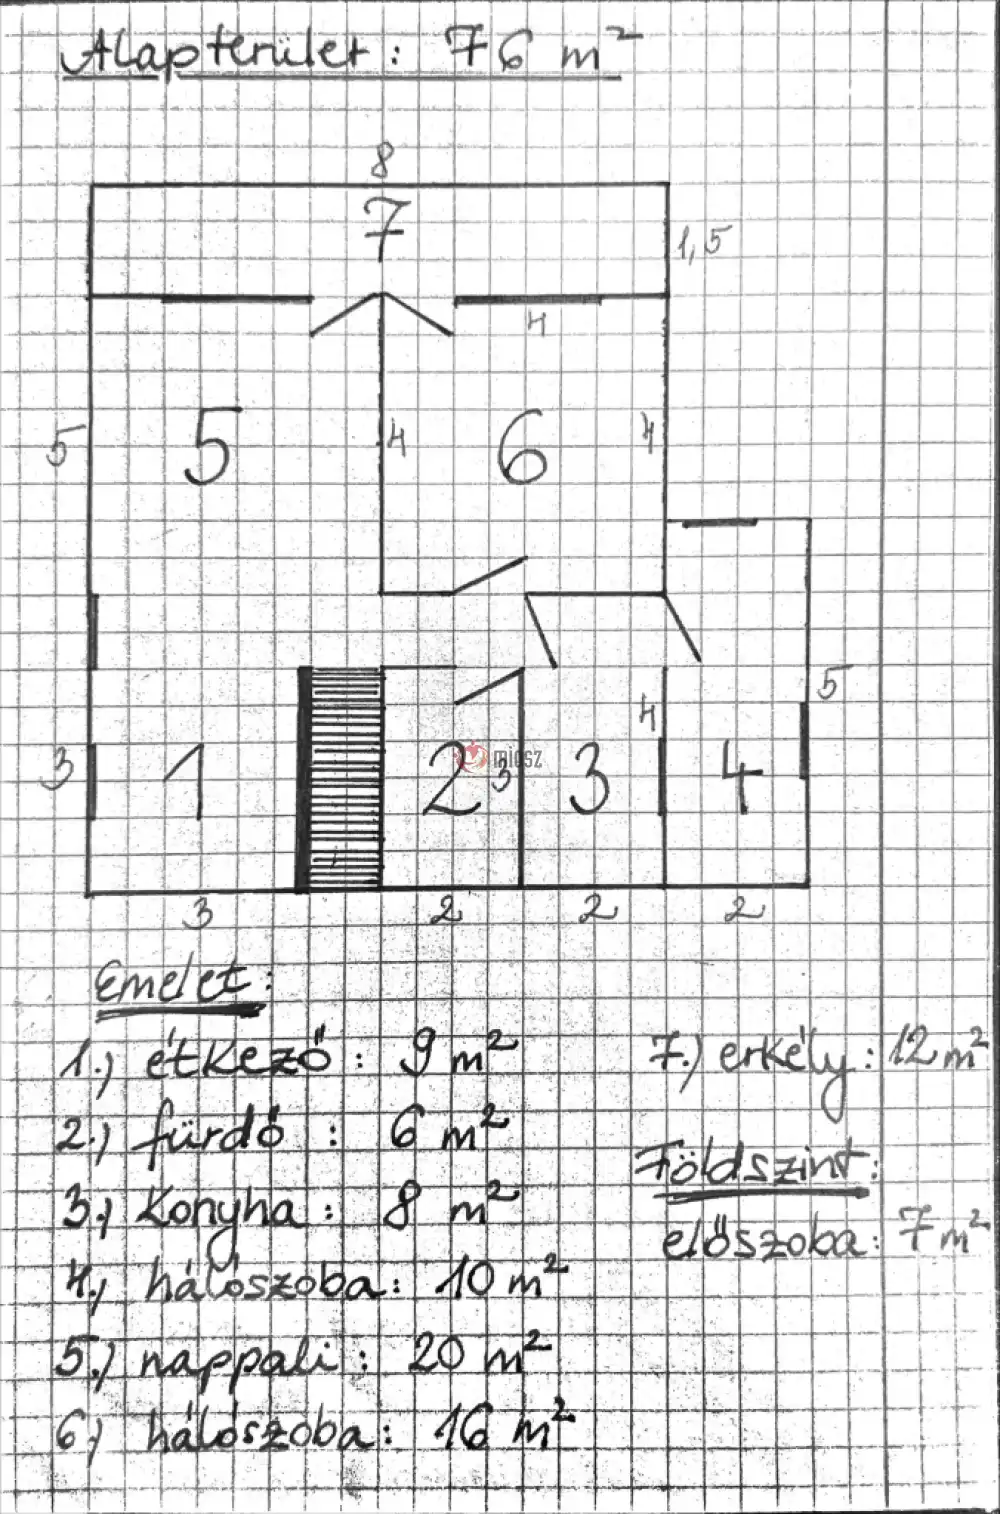 Alapterület: 76 m²
8
7
1,5
4
5
5
4
6
4
5
4
3
1
2
3
3
4
miosz
3
2
2
2
Emelet:
1.) étkező: 9 m²
2.) fürdő: 6 m²
3.) Konyha: 8 m²
4.) hálószoba: 10 m²
5.) nappali: 20 m²
6.) hálószoba: 16 m²
7.) erkély: 12 m²
Földszint:
előszoba: 7 m²